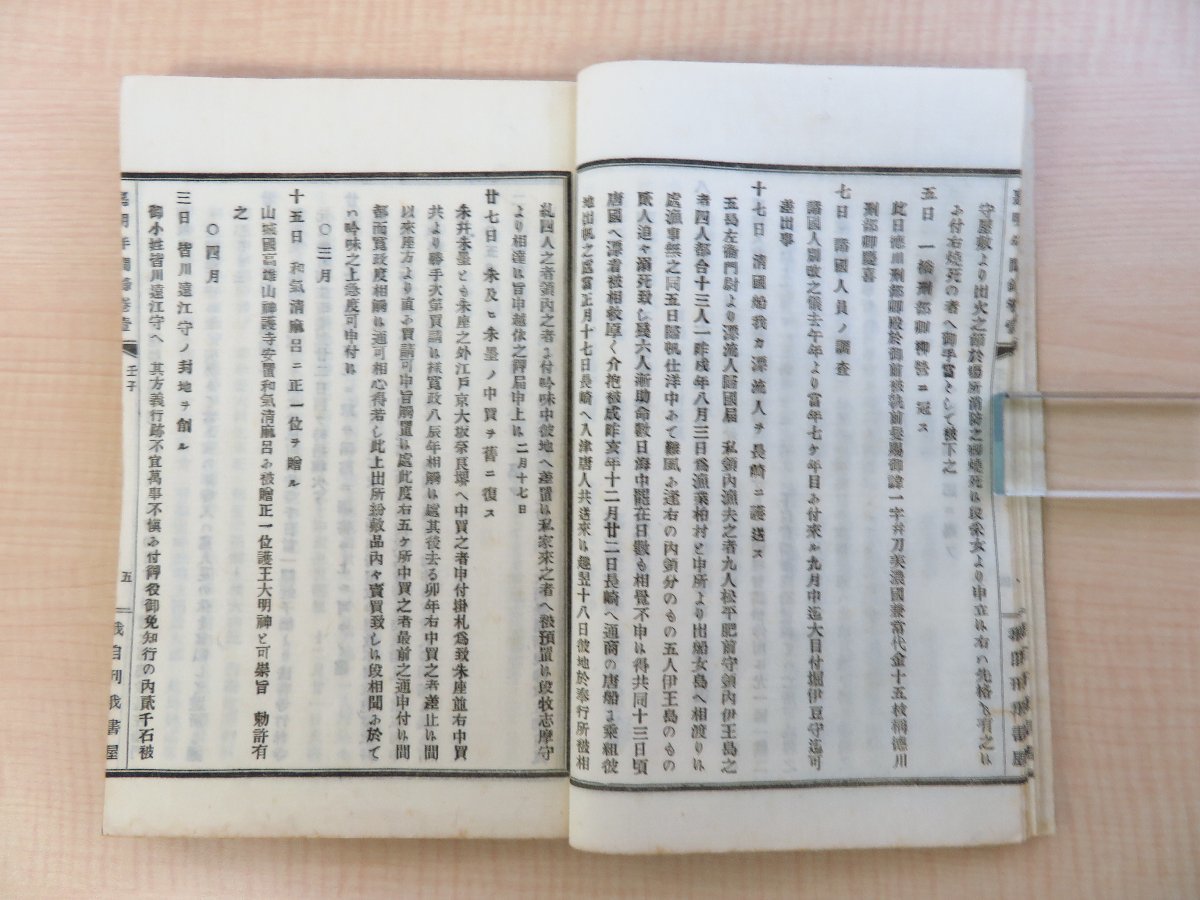 守屋敷より出火之節於場所消防之御燒死は段釆女より申立は右ハ先格も有之は
ゟ付右燒死の者へ御手當として被下之
五日 一橋刑部卿柳營ニ冠ス
此日德川刑部卿殿於御前被執前髮賜御諱一字幷刀美濃國兼常代金十五枚稱德川
刑部卿慶喜
七日 諸國人員ノ調査
諸國人別改之儀去午年より當年七ケ年目ゟ付來ル九月中迄大目付堀伊豆守迄可
差出事
十七日 清國船我カ漂流人ヲ長崎ニ護送ス
五島左衞門尉より漂流人歸國屆 私領內漁夫之者九人松平肥前守領內伊王島之
者四人都合十三人一昨戌年八月三日爲漁業柏村と申所より出船女島へ相渡りは
處漁事無之同五日歸帆仕洋中ゟて難風ゟ逢右の內領分のもの五人伊王島のもの
貳人追々溺死致し殘六人漸助命數日海中罷在日數も相覺不申は得共同十三日頃
唐國へ漂着被相救厚く介抱被成昨亥年十二月廿二日長崎へ通商の唐船ゟ乘組彼
地出帆之處當正月十七日長崎へ入津唐人共送來は趣翌十八日彼地於奉行所被相
糺四人之者領內之者ゟ付吟味中彼地へ差置は私家來之者へ被預置は段牧志摩守
より相達は旨申越依之御屆申上は二月十七日
廿七日 朱及ヒ朱墨ノ中買ヲ舊ニ復ス
朱幷朱墨とも朱座之外江戶京大坂奈良堺へ中買之者申付掛札爲致朱座並右中買
共より勝手次第買請は樣寬政八辰年相觸は處其後去る卯年右中買之者差止は間
以來座方より直ゟ買請可申旨觸置は處此度右五ケ所中買之者最前之通申付は間
都而寬政度相觸は通可相心得若し此上出所紛敷品內々賣買致しは段相聞ゟ於て
ハ吟味之上急度可申付は
〇三月
十五日 和氣清麻呂ニ正一位ヲ贈ル
山城國高雄山神護寺安置和氣清麻呂ゟ被贈正一位護王大明神と可崇旨 勅許有
之
〇四月
三日 皆川遠江守ノ封地ヲ削ル
御小姓皆川遠江守へ 其方義行跡不宜萬事不愼ゟ付御役御免知行の內貳千石被
嘉明年間錄卷壹
壬子
五
我自刊我書屋